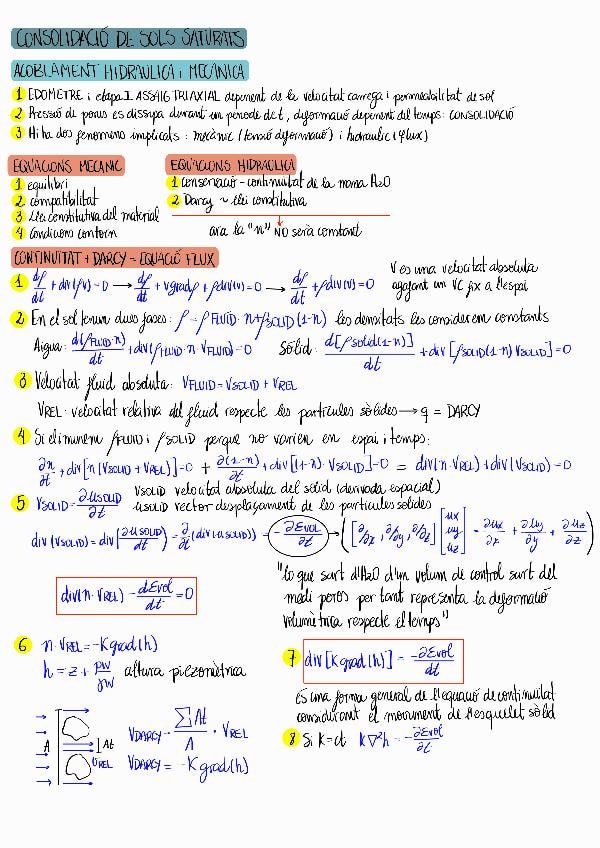 CONSOLIDACIÓ DE SOLS SATURATS
ACOBLAMENT HIDRAULICA i MECÀNICA
1 EDOMETRE i etapa I ASSAIG TRIAXIAL depenent de la velocitat carrega i permeabilitat de sol
2 Pressió de porus es dissipa durant un període de t, deformació depenent del temps: CONSOLIDACIÓ
3 Hi ha dos fenomens implicats: mecànic (tensió deformació) i hidraulic (flux)
EQUACIONS MECANIC
1 equilibri
2 compatibilitat
3 Llei constitutiva del material
4 condicions contorn
EQUACIONS HIDRAULICA
1 conservació - continuitat de la massa H2O
2 Darcy ~ llei constitutiva
ara la "n" NO serà constant
CONTINUITAT + DARCY - EQUACIÓ FLUX
1 dρ/dt + div(ρv) = 0 → dρ/dt + v grad ρ + ρ div(v) = 0 → dρ/dt + ρ div(v) = 0
V es una velocitat absoluta
agafant un VC fix a l'espai
2 En el sol tenim dues fases: ρ = ρFLUID · n + ρSOLID (1-n) les densitats les considerem constants
Aigua: d(ρFLUID·n)/dt + div(ρFLUID·n·VFLUID) = 0 Sòlid: d[ρsolid(1-n)]/dt + div[ρSOLID(1-n)VSOLID] = 0
3 Velocitat fluid absoluta: VFLUID = VSOLID + VREL
VREL: velocitat relativa del fluid respecte les partícules sòlides → q = DARCY
4 Si eliminem ρFLUID i ρSOLID perque no varien en espai i temps:
∂n/∂t + div[n(VSOLID + VREL)] = 0 + ∂(1-n)/∂t + div[(1-n)·VSOLID] = 0 = div(n·VREL) + div(VSOLID) = 0
5 VSOLID = ∂uSOLID/∂t
VSOLID velocitat absoluta del sòlid (derivada espacial)
uSOLID vector desplaçament de les partícules sòlides
div(VSOLID) = div(∂uSOLID/∂t) = ∂/∂t (div(uSOLID)) = -∂Evol/∂t → ([∂/∂x, ∂/∂y, ∂/∂z] [ux uy uz] = ∂ux/∂x + ∂uy/∂y + ∂uz/∂z)
div(n·VREL) - dEvol/dt = 0
"lo que surt d'H2O d'un volum de control surt del
medi poros per tant representa la deformació
volumètrica respecte el temps"
6 n·VREL = -K grad(h)
h = z + Pw/γw altura piezomètrica
A At VREL
VDARCY = ΣAt/A · VREL
VDARCY = -K grad(h)
7 div[K grad(h)] = -∂Evol/dt
és una forma general de l'equació de continuitat
considerant el moviment de l'esquelet sòlid
8 Si K=ct K∇²h = -∂Evol/∂t